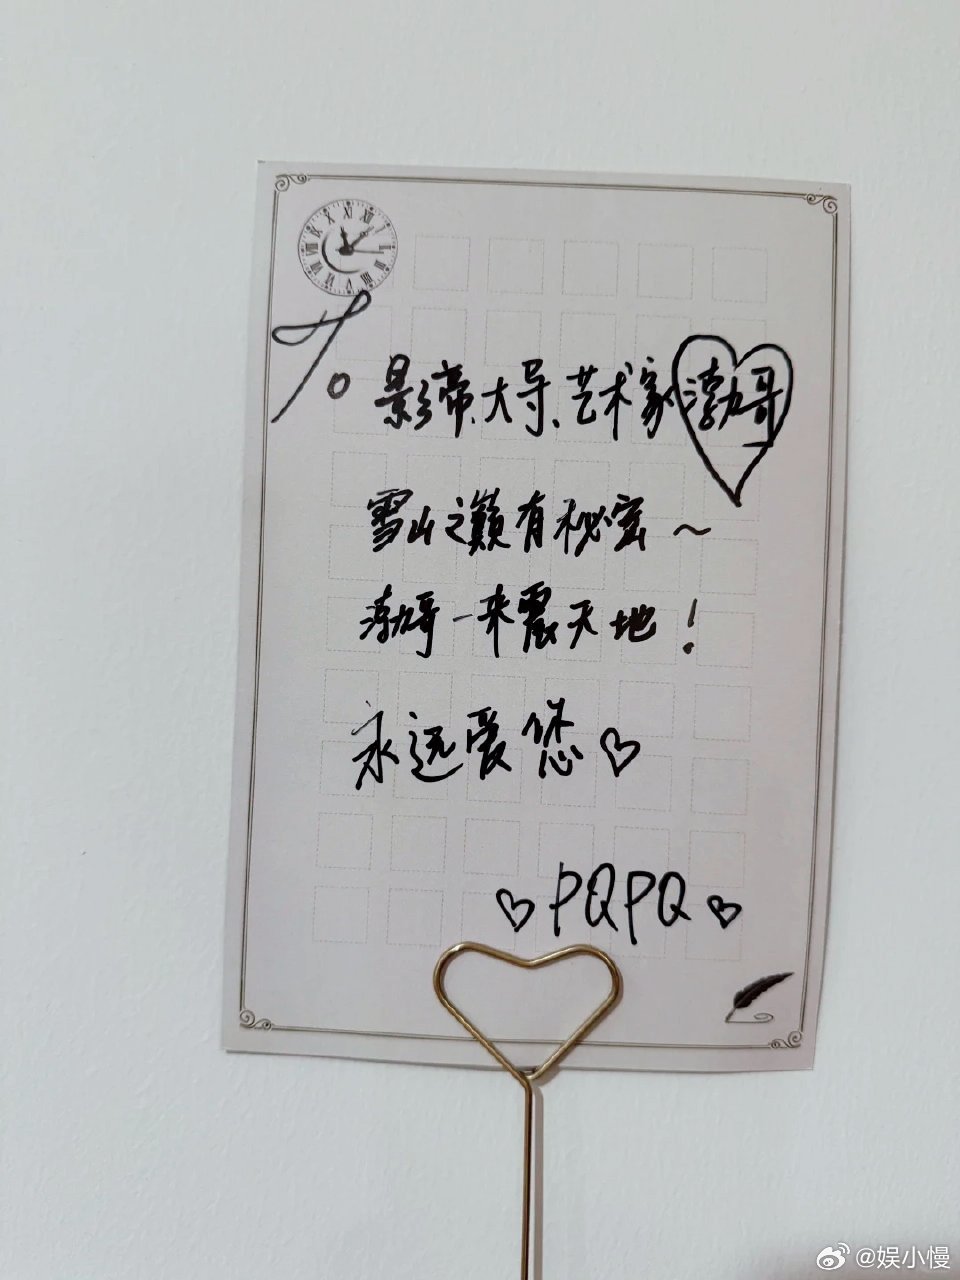 To 影帝、大导、艺术家渤哥
雪山之巅有秘密~
渤哥一来震天地！
永远爱您♡
♡PQPQ♡
@娱小慢